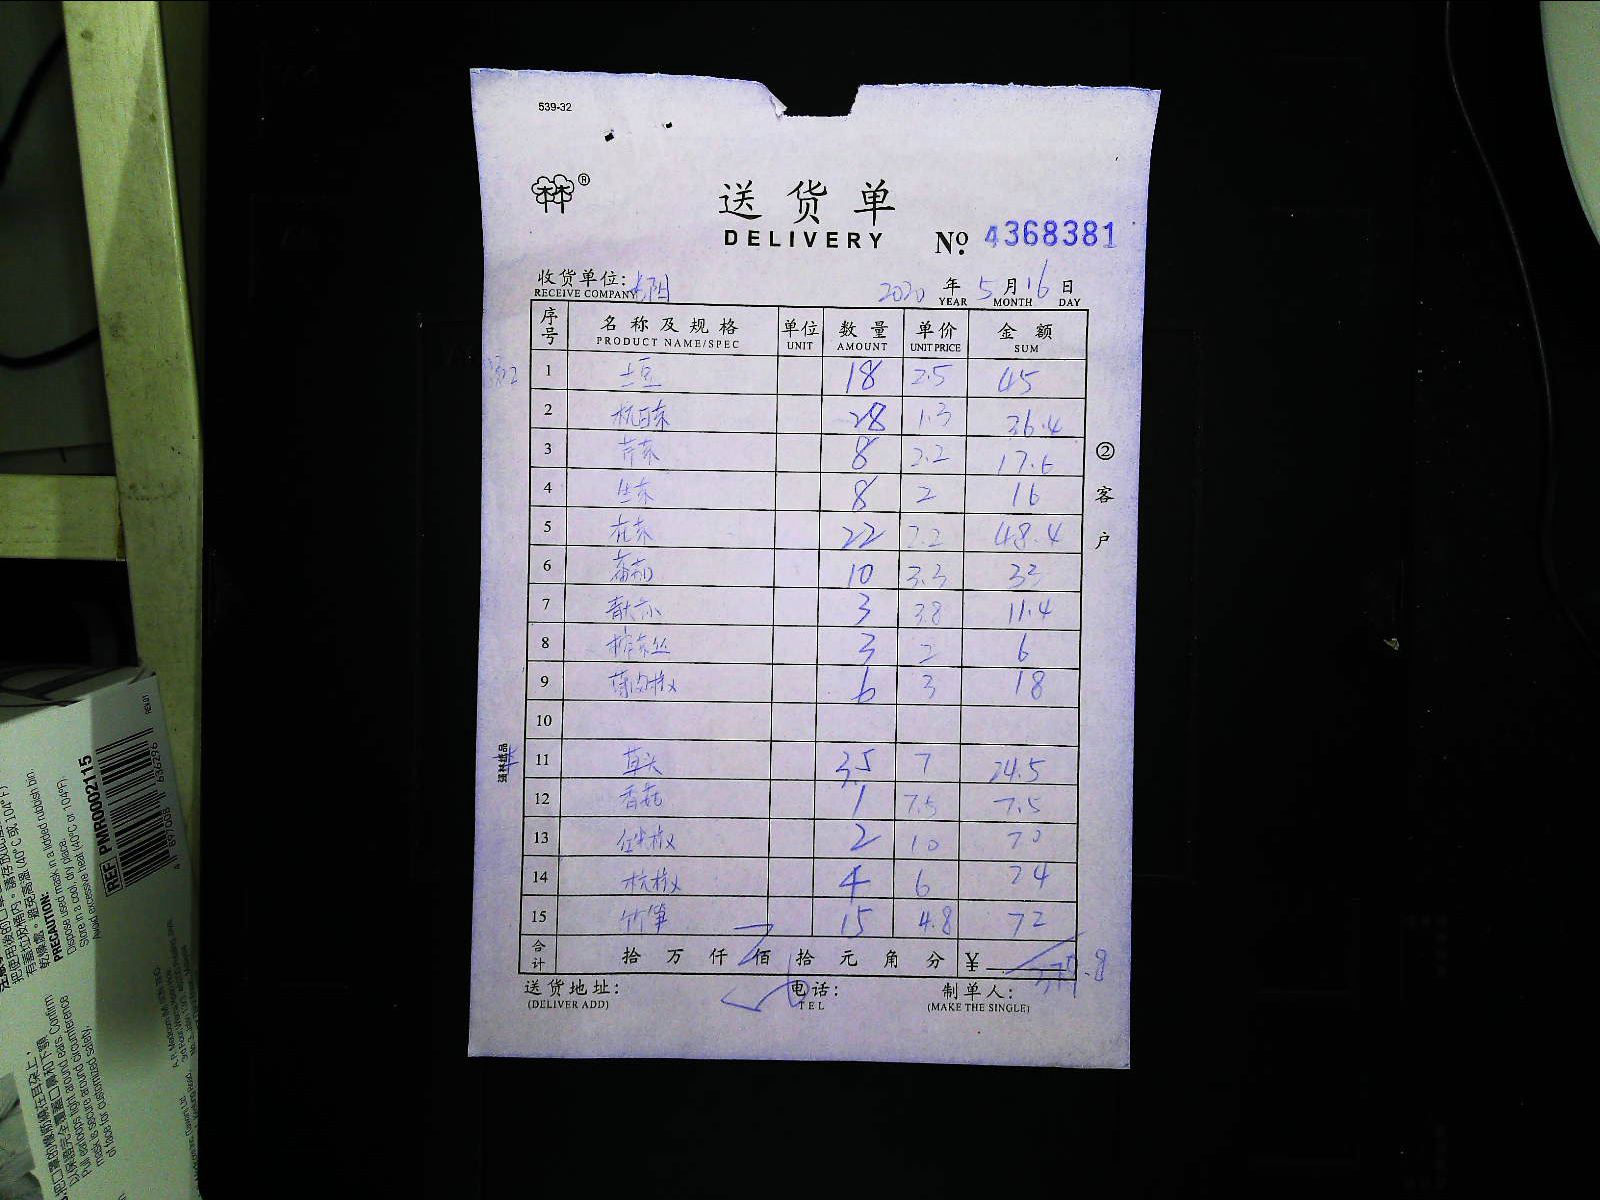 539-32
®
送货单
DELIVERY
No. 4368381
收货单位:
RECEIVE COMPANY
2020 年 5 月 16 日
YEAR MONTH DAY
序号 名称及规格 单位 数量 单价 金额
PRODUCT NAME/SPEC UNIT AMOUNT UNIT PRICE SUM
1 土豆 18 2.5 45
2 杭白菜 28 1.3 36.4
3 芹菜 8 2.2 17.6
4 生菜 8 2 16
5 花菜 22 2.2 48.4
6 番茄 10 3.3 33
7 3 3.8 11.4
8 榨菜丝 3 2 6
9 薄肉椒 6 3 18
10
11 草头 3.5 7 24.5
12 香菇 1 7.5 7.5
13 2 10 20
14 杭椒 4 6 24
15 竹笋 15 4.8 72
合计 拾 万 仟 佰 拾 元 角 分 ¥
送货地址: 电话: 制单人:
(DELIVER ADD) TEL (MAKE THE SINGLE)
②客户
强林纸品
REF PMR0002115
4 897006 636296
PRECAUTION:
Dispose used mask in a lidded rubbish bin.
Store in a cool, dry place.
Avoid excessive heat (40°C or 104°F)